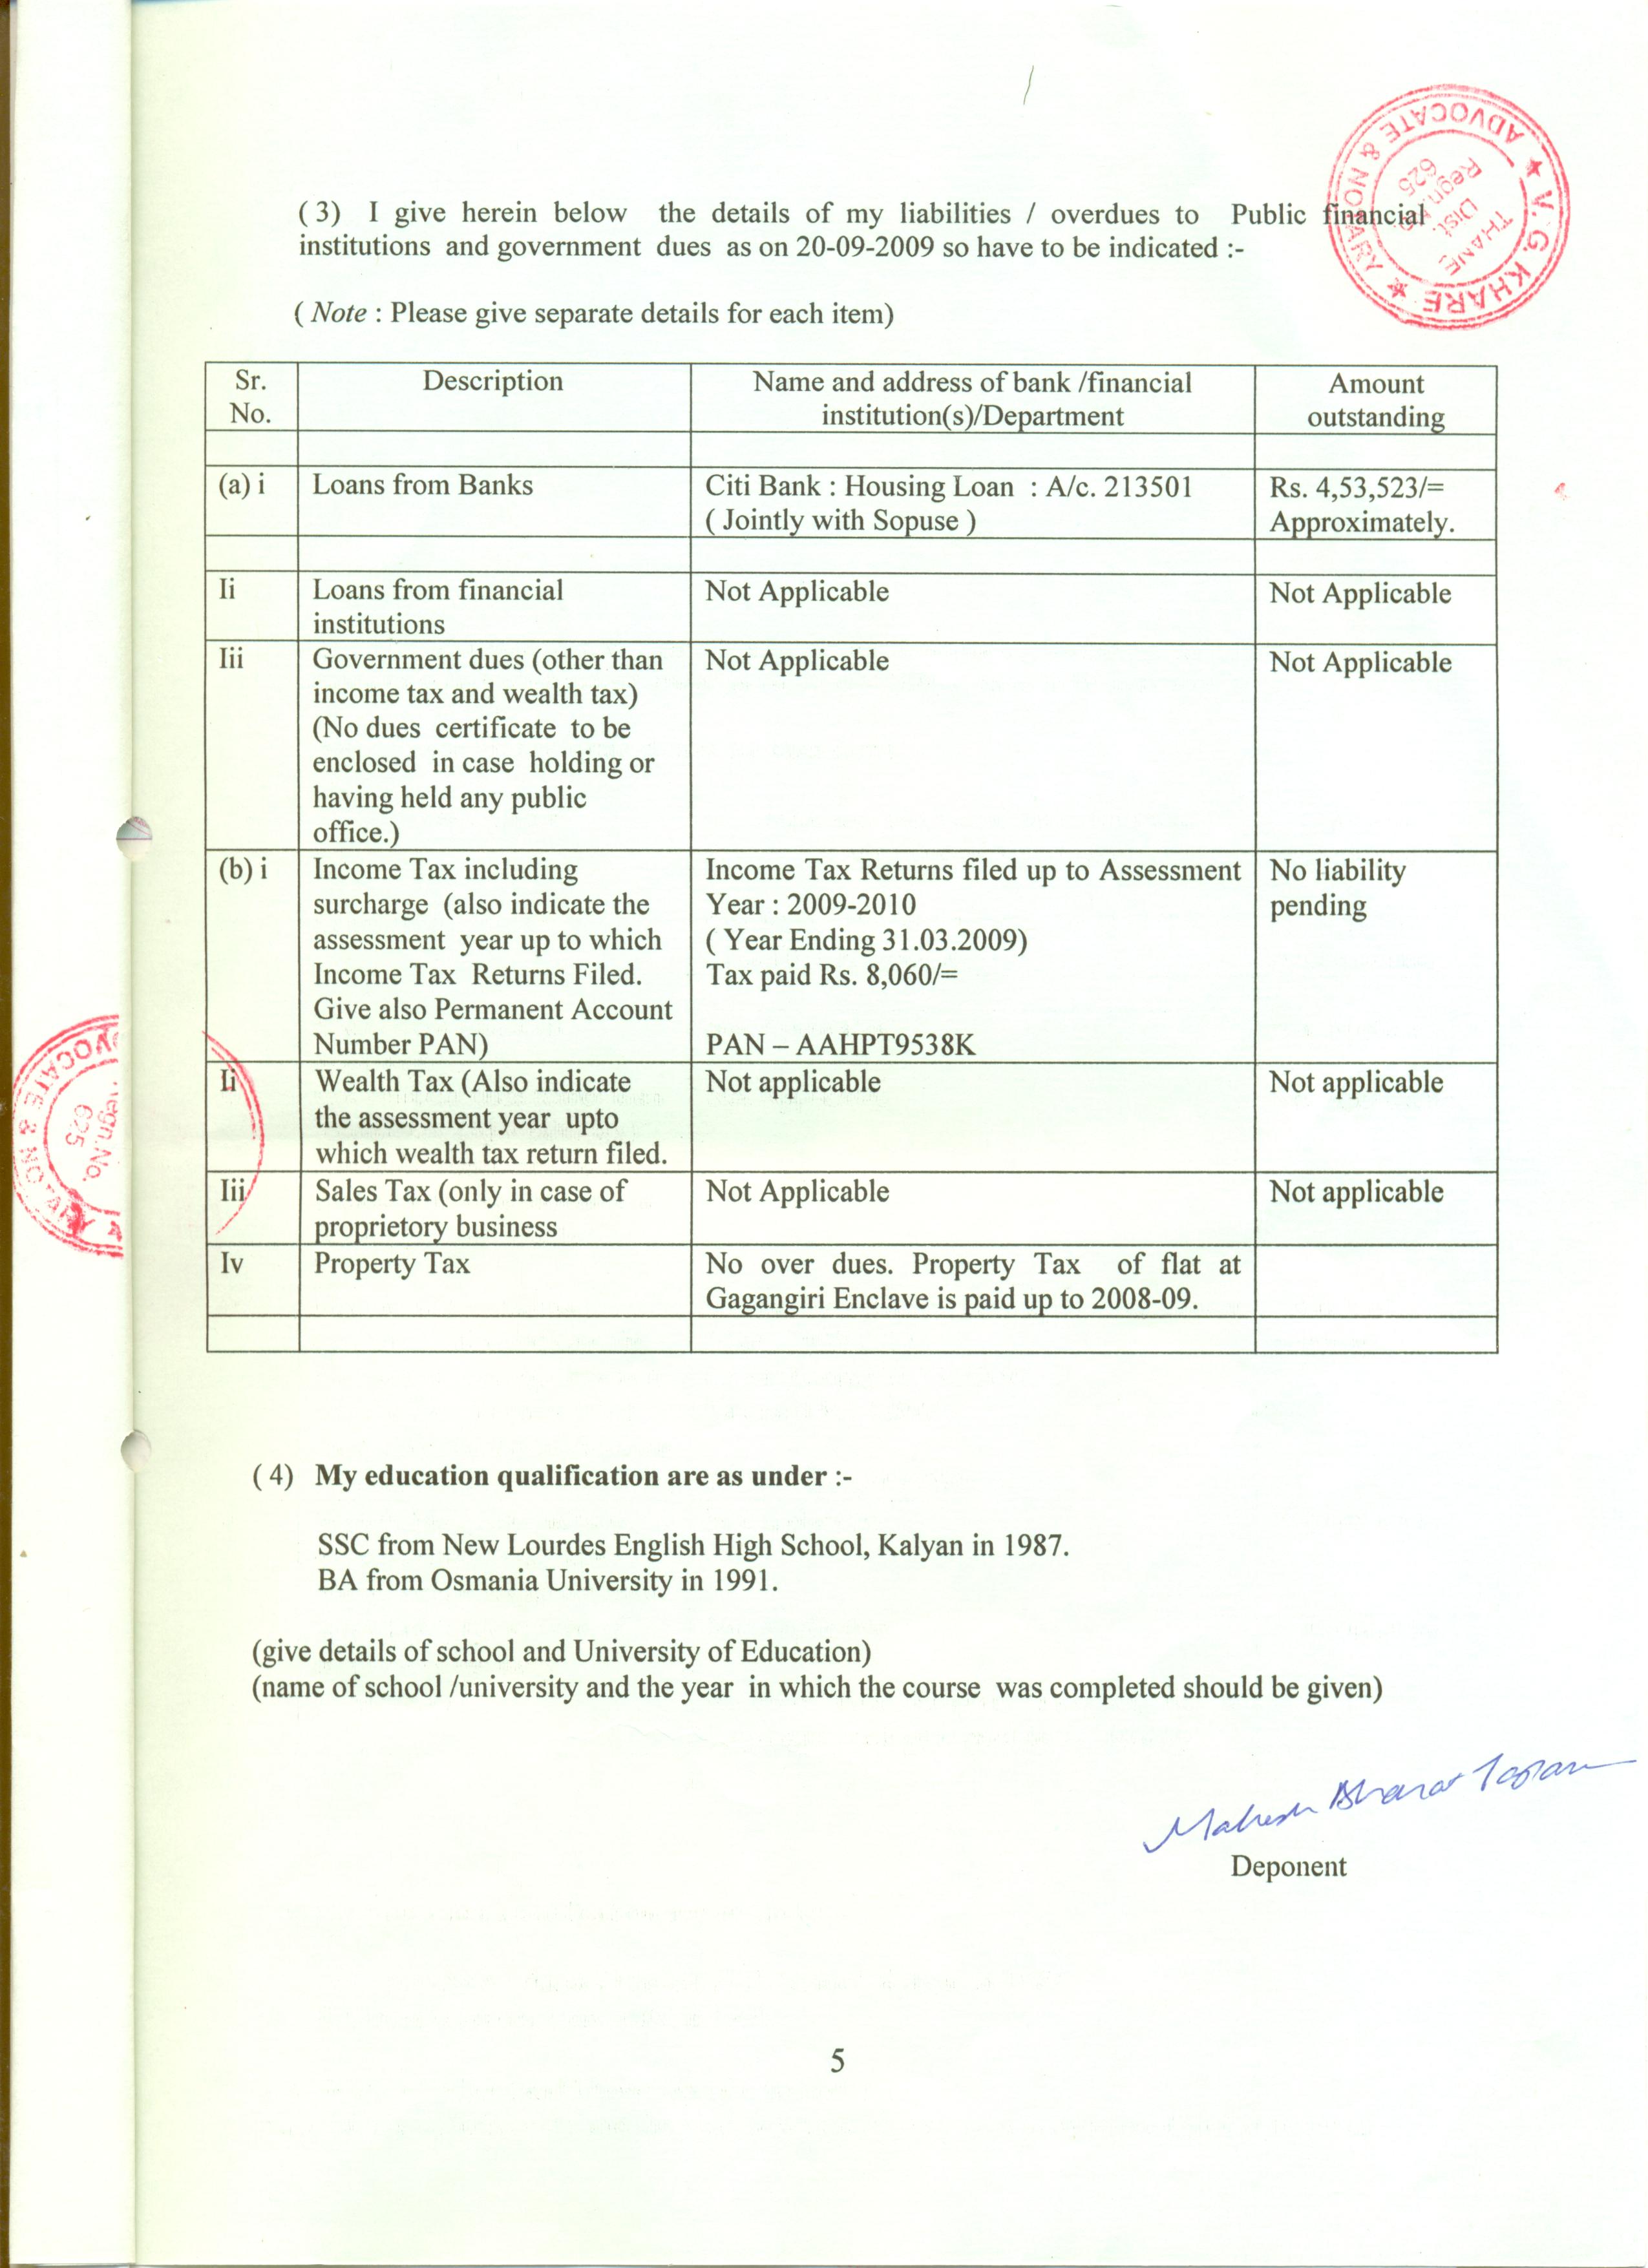 ( 3) I give herein below the details of my liabilities / overdues to Public financial
institutions and government dues as on 20-09-2009 so have to be indicated :-
( Note : Please give separate details for each item)
Sr. No. Description Name and address of bank /financial institution(s)/Department Amount outstanding
(a) i Loans from Banks Citi Bank : Housing Loan : A/c. 213501 Rs. 4,53,523/=
( Jointly with Sopuse ) Approximately.
Ii Loans from financial Not Applicable Not Applicable
institutions
Iii Government dues (other than Not Applicable Not Applicable
income tax and wealth tax)
(No dues certificate to be
enclosed in case holding or
having held any public
office.)
(b) i Income Tax including Income Tax Returns filed up to Assessment No liability
surcharge (also indicate the Year : 2009-2010 pending
assessment year up to which ( Year Ending 31.03.2009)
Income Tax Returns Filed. Tax paid Rs. 8,060/=
Give also Permanent Account
Number PAN) PAN – AAHPT9538K
Ii Wealth Tax (Also indicate Not applicable Not applicable
the assessment year upto
which wealth tax return filed.
Iii Sales Tax (only in case of Not Applicable Not applicable
proprietory business
Iv Property Tax No over dues. Property Tax of flat at
Gagangiri Enclave is paid up to 2008-09.
( 4) My education qualification are as under :-
SSC from New Lourdes English High School, Kalyan in 1987.
BA from Osmania University in 1991.
(give details of school and University of Education)
(name of school /university and the year in which the course was completed should be given)
Mahesh Bharat
Deponent
5
★ V. G. KHARE ★ ADVOCATE & NOTARY
THANE,
Dist.
Regn.No.
625
ADVOCATE & NOTARY
Regn.No.
625